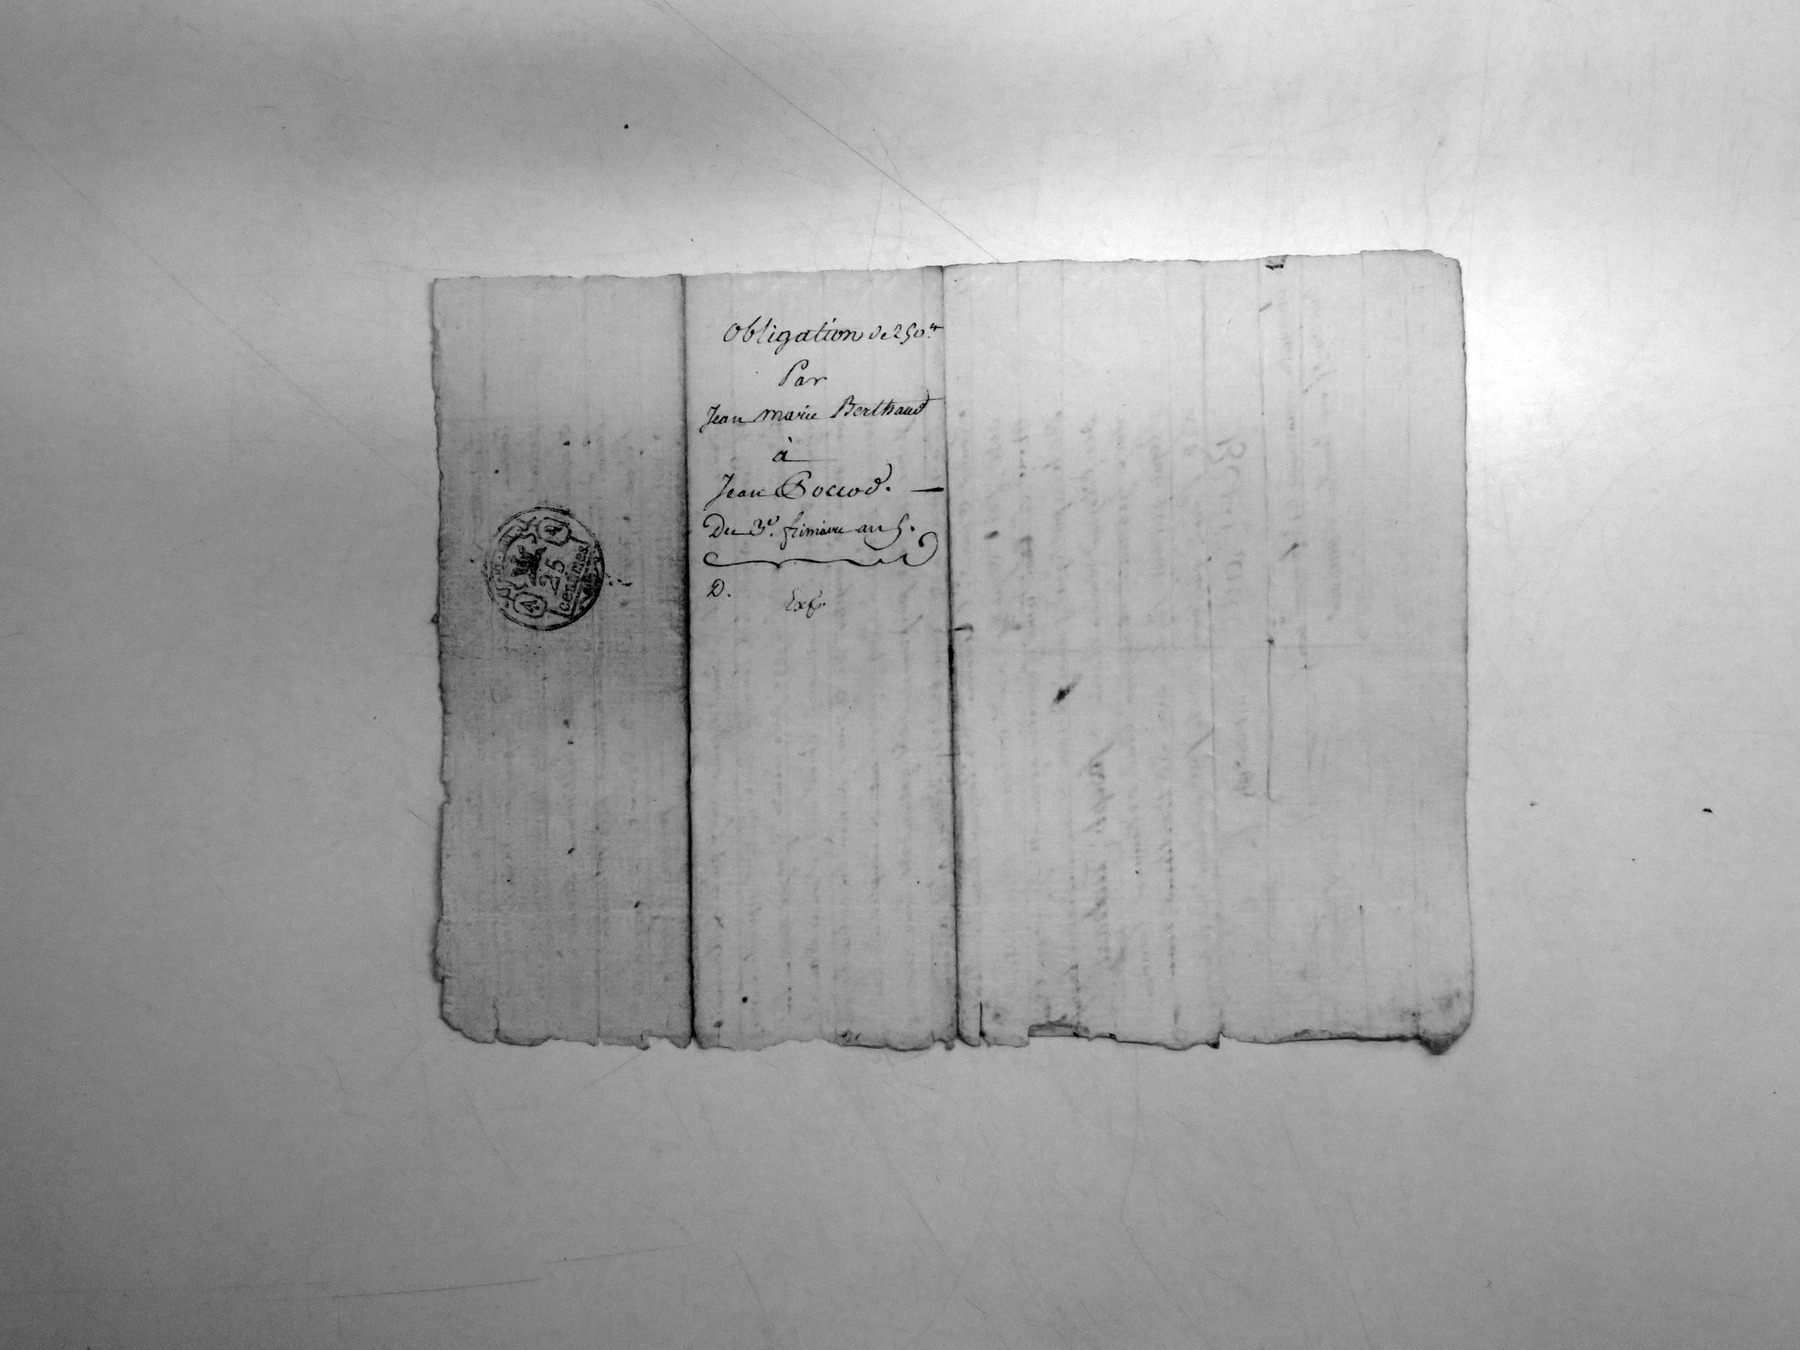 Obligation de 250.tt
Par
Jean marie Berthaud
à
Jean Boccod.
Du 3e. frimaire an 5.
D.
Exp.
25
centimes